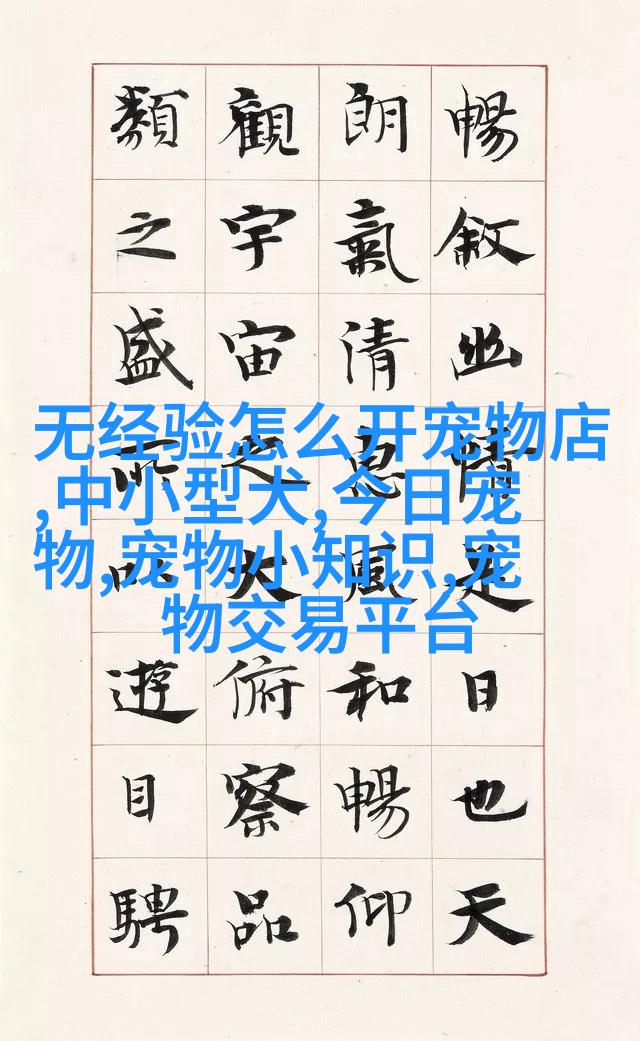 暢敘幽情是日也天
朗氣清惠風和暢仰
觀宇宙之大俯察品
類之盛所以遊目騁
无经验怎么开宠物店
,中小型犬,今日宠
物,宠物小知识,宠
物交易平台